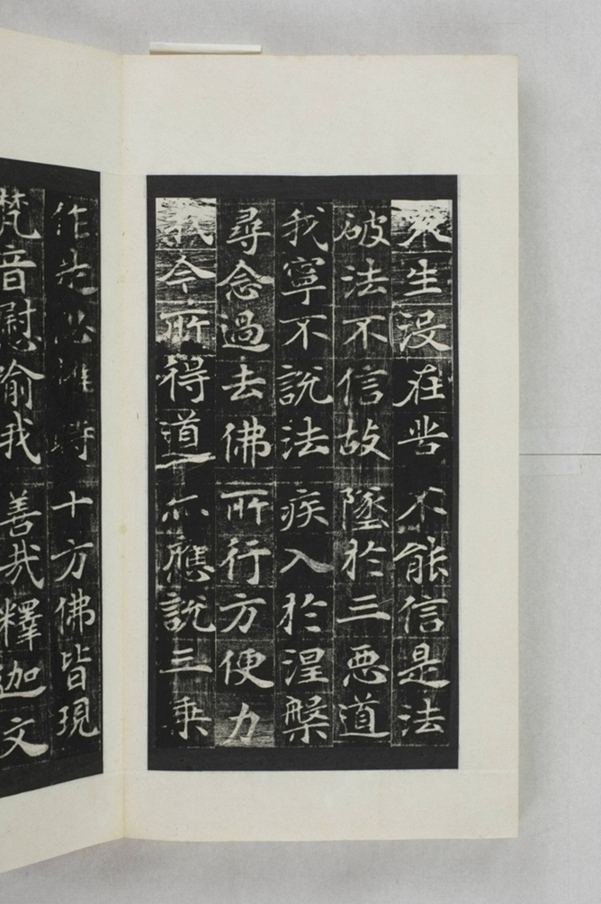 眾生沒在苦不能信是法
破法不信故墜於三惡道
我寧不說法疾入於涅槃
尋念過去佛所行方便力
我今所得道亦應說三乘
作是思惟時十方佛皆現
梵音慰喻我善哉釋迦文